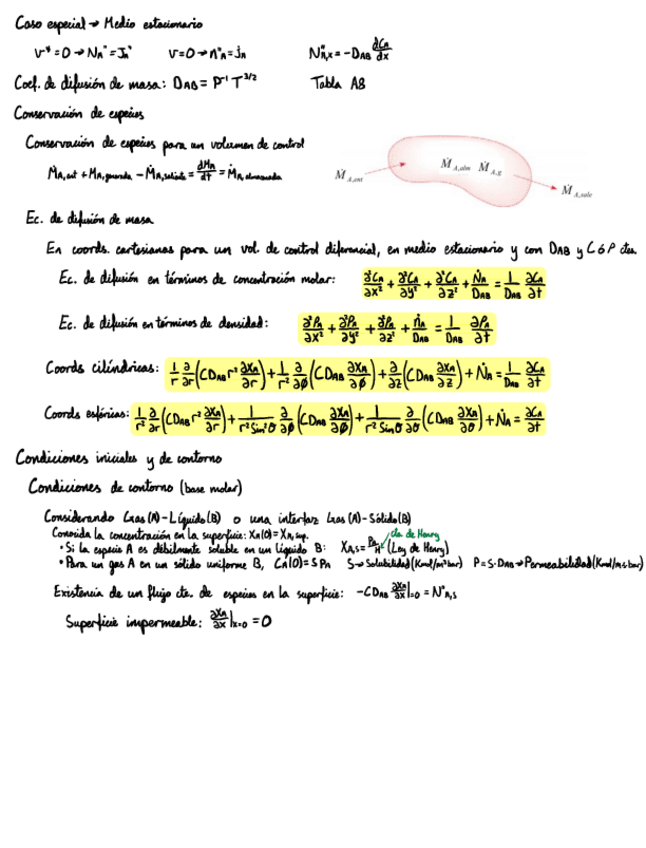 Caso especial → Medio estacionario
v* = 0 → N_A" = J_A* v = 0 → n"_A = j_A N"_A,x = -D_AB dC_A/dx
Coef. de difusión de masa: D_AB = P⁻¹ T^3/2 Tabla A8
Conservación de especies
Conservación de especies para un volumen de control
Ṁ_A,ent + Ṁ_A,generada - Ṁ_A,saliente = dM_A/dt = Ṁ_A,almacenada
Ṁ_A,ent Ṁ_A,alm Ṁ_A,g Ṁ_A,sale
Ec. de difusión de masa
En coords. cartesianas para un vol. de control diferencial, en medio estacionario y con D_AB y C ó ρ ctes.
Ec. de difusión en términos de concentración molar: ∂²C_A/∂x² + ∂²C_A/∂y² + ∂²C_A/∂z² + Ṅ_A/D_AB = 1/D_AB ∂C_A/∂t
Ec. de difusión en términos de densidad: ∂²ρ_A/∂x² + ∂²ρ_A/∂y² + ∂²ρ_A/∂z² + ṅ_A/D_AB = 1/D_AB ∂ρ_A/∂t
Coords cilíndricas: 1/r ∂/∂r (CD_AB r² ∂X_A/∂r) + 1/r² ∂/∂ø (CD_AB ∂X_A/∂ø) + ∂/∂z (CD_AB ∂X_A/∂z) + Ṅ_A = 1/D_AB ∂C_A/∂t
Coords esféricas: 1/r² ∂/∂r (CD_AB r² ∂X_A/∂r) + 1/r² Sin²θ ∂/∂ø (CD_AB ∂X_A/∂ø) + 1/r² Sinθ ∂/∂θ (CD_AB ∂X_A/∂θ) + Ṅ_A = ∂C_A/∂t
Condiciones iniciales y de contorno
Condiciones de contorno (base molar)
Considerando Gas (A) - Líquido (B) o una interfaz Gas (A) - Sólido (B)
Conocida la concentración en la superficie: X_A(0) = X_A,sup.
cte. de Henry
• Si la especie A es débilmente soluble en un líquido B: X_A,S = P_A/H (Ley de Henry)
• Para un gas A en un sólido uniforme B, C_A(0) = S P_A S → Solubilidad (Kmol/m³bar) P = S·D_AB → Permeabilidad (Kmol/m·s·bar)
Existencia de un flujo cte. de especies en la superficie: -CD_AB ∂X_A/∂x|x=0 = N"_A,S
Superficie impermeable: ∂X_A/∂x|x=0 = 0